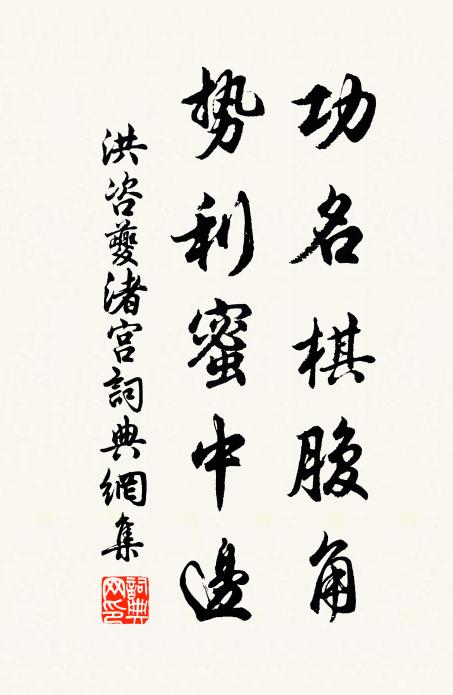 功名棋腹角
势利蜜中邊
洪咨夔渚宫詞典網集